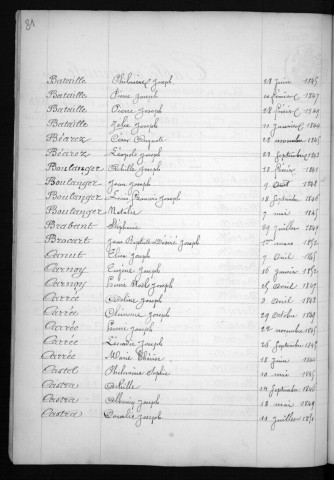 81
Bataille Philomène Joseph 28 Juin 1845
Bataille Pierre Joseph 10 février 1847
Bataille Pierre Joseph 28 février 1849
Bataille Julie Joseph 11 Janvier 1844
Béarez César Auguste 22 novembre 1845
Béarez Léopold Joseph 22 Septembre
Boulanger Achille Joseph 18 février 1841
Boulanger Jean Joseph 9 Août 1848
Boulanger Louis François Joseph 18 Septembre 1846
Boulanger Natalie 7 mai 1845
Brabant Stéphanie 29 Juillet
Brocart Jean Baptiste Désiré Joseph 15 mars 1852
Canut Elise Joseph 7 Avril 1845
Carnoy Eugène Joseph 16 Janvier 1852
Carnoy Joseph 25 Avril 1847
Carrée Adeline Joseph 3 Avril 1842
Carrée Clémence Joseph 29 Octobre 1849
Carrée Joseph 22 novembre 1851
Carrée Léocadie Joseph 26 Septembre 1845
Carrée Marie Thérèse 18 Juin
Castel Philomène Sophie 10 mai 1845
Castra Achille 14 Septembre 1846
Castra Albenise Joseph 12 mai 1849
Castra Donalie Joseph 11 Juillet 1851